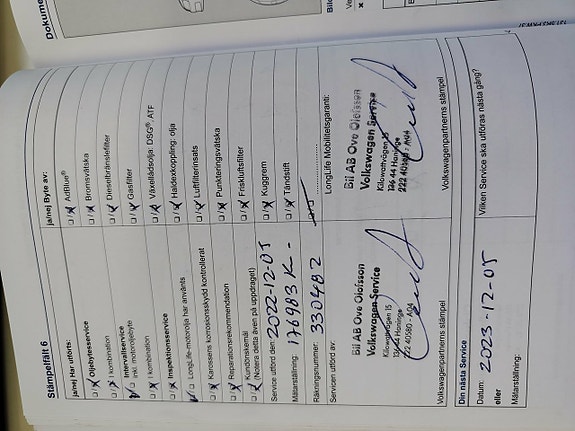 Stämpelfält 6
ja/nej Har utförts:
Oljebytesservice
I kombination
Intervallservice
inkl. motoroljebyte
I kombination
Inspektionsservice
LongLife-motorolja har använts
Karossens korrosionsskydd kontrollerat
Reparationsrekommendation
Kundönskemål
(Notera detta även på uppdraget)
Service utförd den: 2022-12-05
Mätarställning: 176983 K -
Räkningsnummer: 330482
Servicen utförd av:
Bil AB Ove Olofsson
Volkswagen Service
Kilowattvägen 15
136 44 Haninge
222 40580 - A04
Volkswagenpartnerns stämpel
Din nästa Service
Datum: 2023-12-05
eller
Mätarställning:
ja/nej Byte av:
AdBlue®
Bromsvätska
Dieselbränslefilter
Gasfilter
Växellådsolja: DSG®, ATF
Haldexkoppling: olja
Luftfilterinsats
Punkteringsvätska
Friskluftsfilter
Kuggrem
Tändstift
LongLife Mobilitetsgaranti:
Bil AB Ove Olofsson
Volkswagen Service
Kilowattvägen 15
136 44 Haninge
222 40580 - A04
Volkswagenpartnerns stämpel
Vilken Service ska utföras nästa gång?